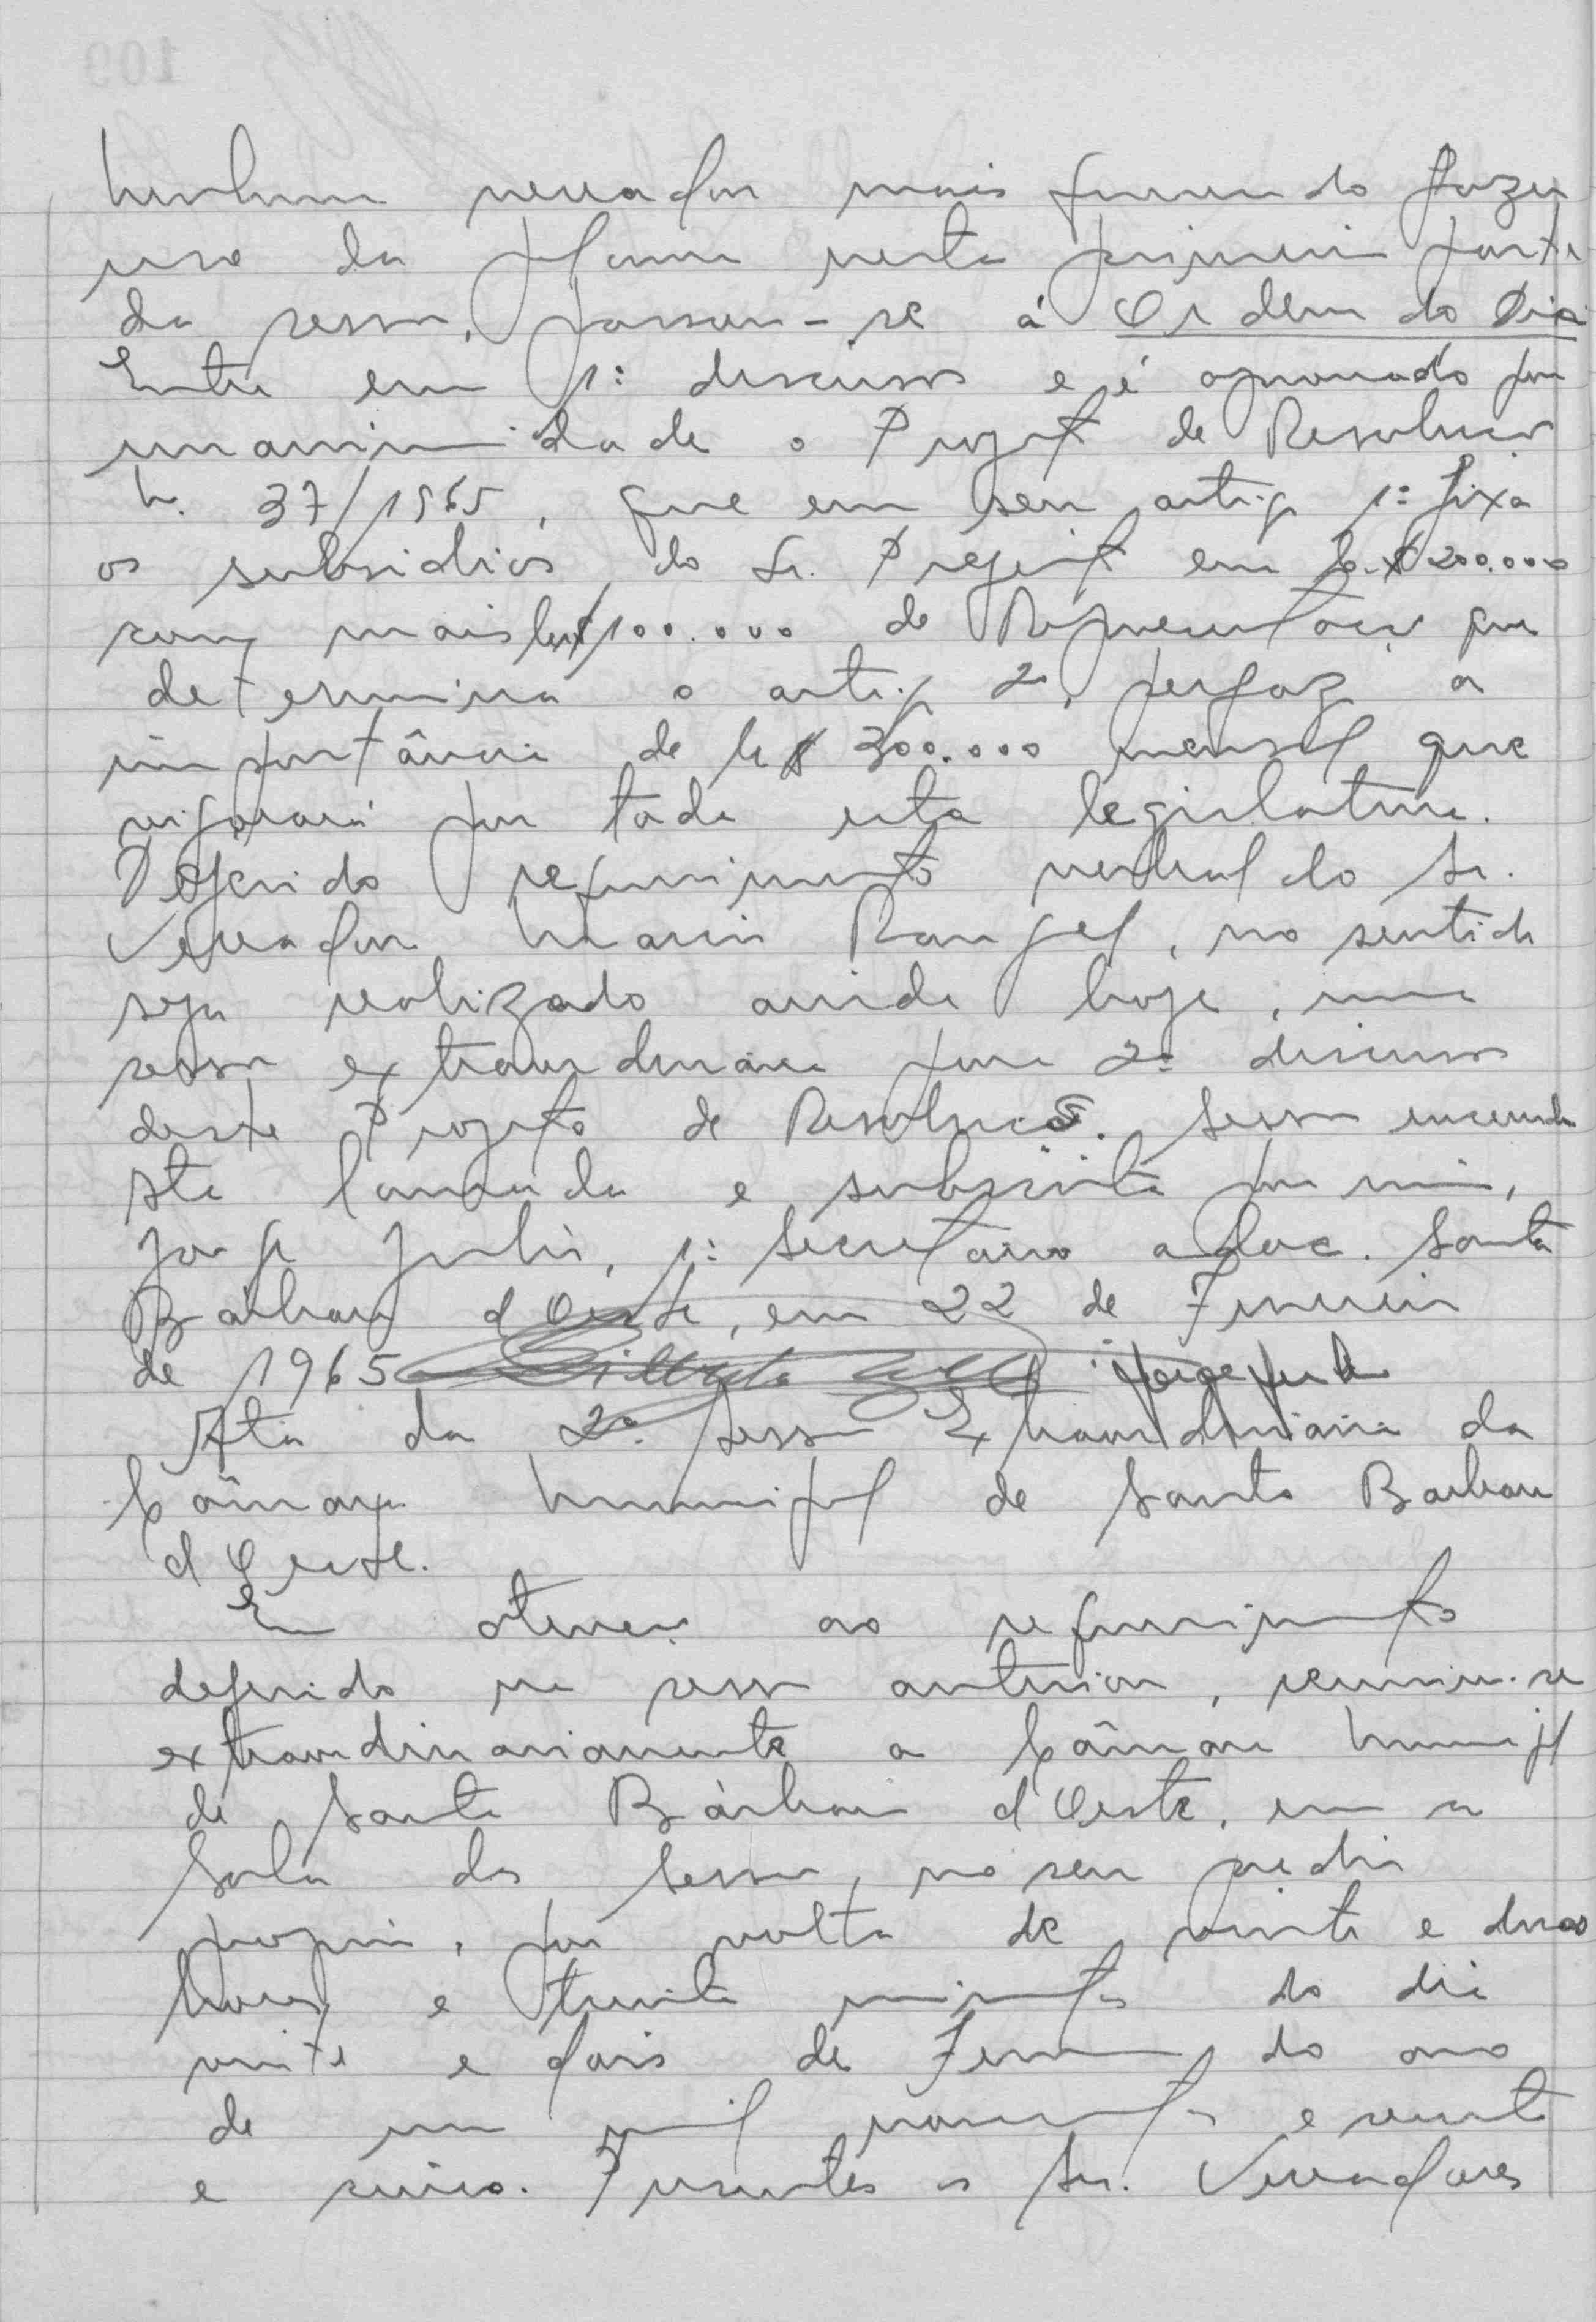 Nenhum vereador mais querendo fazer
uso da palavra nesta primeira parte
da sessão, passou-se á Ordem do Dia
Entra em 1ª discussão e é aprovado por
unanimidade o Projeto de Resolução
n. 37/1965, que em seu artigo 1º fixa
os subsidios do Sr. Prefeito em Cr$ 200.000
com mais Cr$ 100.000 de Representação que
determina o artigo 2º, perfaz a
importância de Cr$ 300.000 mensal que
vigorará por toda esta legislatura.
Deferido requerimento verbal do Sr.
Vereador Mario Rangel, no sentido
seja realizado ainda hoje, uma
sessão extraordinária para 2ª discussão
deste Projeto de Resolução. Sessão encerrada
Ata lavrada e subscrita por mim,
Jorge Julio, 1º Secretario adhoc. Santa
Bárbara d'Oeste, em 22 de Fevereiro
de 1965 Jorge Julio
Ata da 2ª Sessão Extraordinária da
Câmara Municipal de Santa Barbara
d'Oeste.
Em atenção ao requerimento
deferido na sessão anterior, reuniu-se
extraordinariamente a Câmara Municipal
de Santa Bárbara d'Oeste, em a
Sala das Sessões, no seu predio
proprio, por volta de vinte e duas
horas e trinta minutos do dia
vinte e dois de Fevereiro do ano
de um mil novecentos e sessenta
e cinco. Presentes os Srs. Vereadores